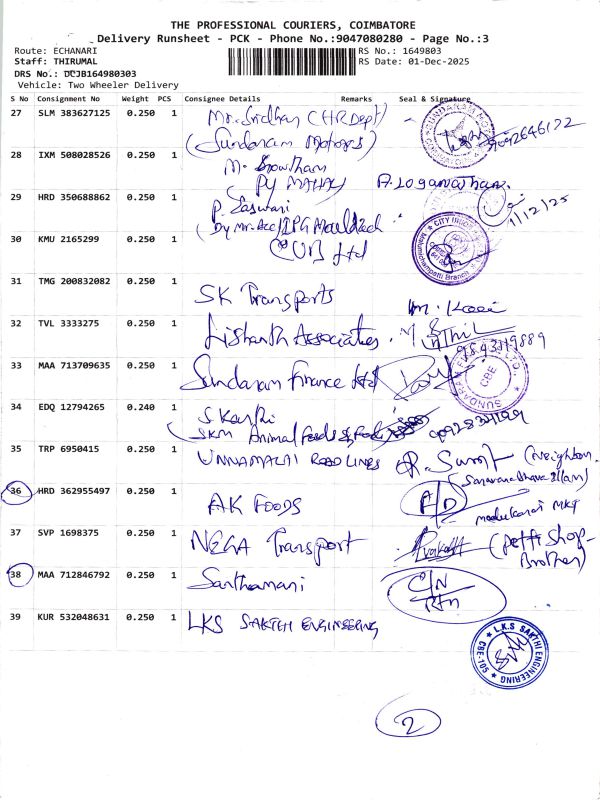 THE PROFESSIONAL COURIERS, COIMBATORE
Delivery Runsheet - PCK - Phone No.:9047080280 - Page No.:3
Route: ECHANARI RS No.: 1649803
Staff: THIRUMAL RS Date: 01-Dec-2025
DRS No.: DCJB164980303
Vehicle: Two Wheeler Delivery
S No Consignment No Weight PCS Consignee Details Remarks Seal & Signature
27 SLM 383627125 0.250 1 Mr. Sridhar (HR Dept)
(Sundaram Motors)
28 IXM 508028526 0.250 1 M. Gowtham
29 HRD 350688862 0.250 1 P. Easwari
1/12/25
30 KMU 2165299 0.250 1 CUB Ltd
31 TMG 200832082 0.250 1 SK Transports
32 TVL 3333275 0.250 1 Lishanth Associates. M
33 MAA 713709635 0.250 1 Sundaram Finance Ltd
CBE
34 EDQ 12794265 0.240 1 S. Karthi
SKM Animal Foods & Food
35 TRP 6950415 0.250 1 UNNAMALAI ROAD LINES (Neighbour
36 HRD 362955497 0.250 1 AK FOODS A/D
37 SVP 1698375 0.250 1 NEGA Transport Prakash (Petti Shop-
Brother)
38 MAA 712846792 0.250 1 Santhamani C/N
Rtn
39 KUR 532048631 0.250 1 LKS SAKTHI ENGINEERING
L.K.S. SAKTHI ENGINEERING
CBE-105
2